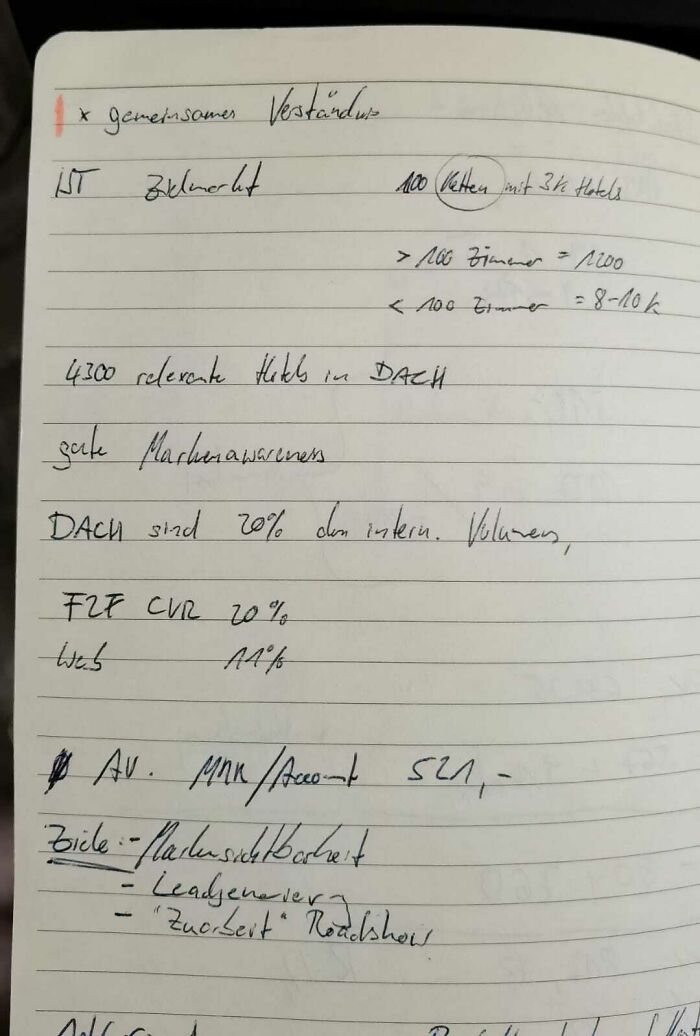 x gemeinsames Verständnis
IST Zielmarkt 100 Ketten mit 3k Hotels
> 100 Zimmer = 1200
< 100 Zimmer = 8-10k
4300 relevante Hotels in DACH
gute Markenawareness
DACH sind 20% des intern. Volumens,
F2F CVR 20%
Web 11%
AV. MRR/Account 521,-
Ziele: - Markensichtbarkeit
- Leadgenerierg
- "Zuarbeit" Roadshow